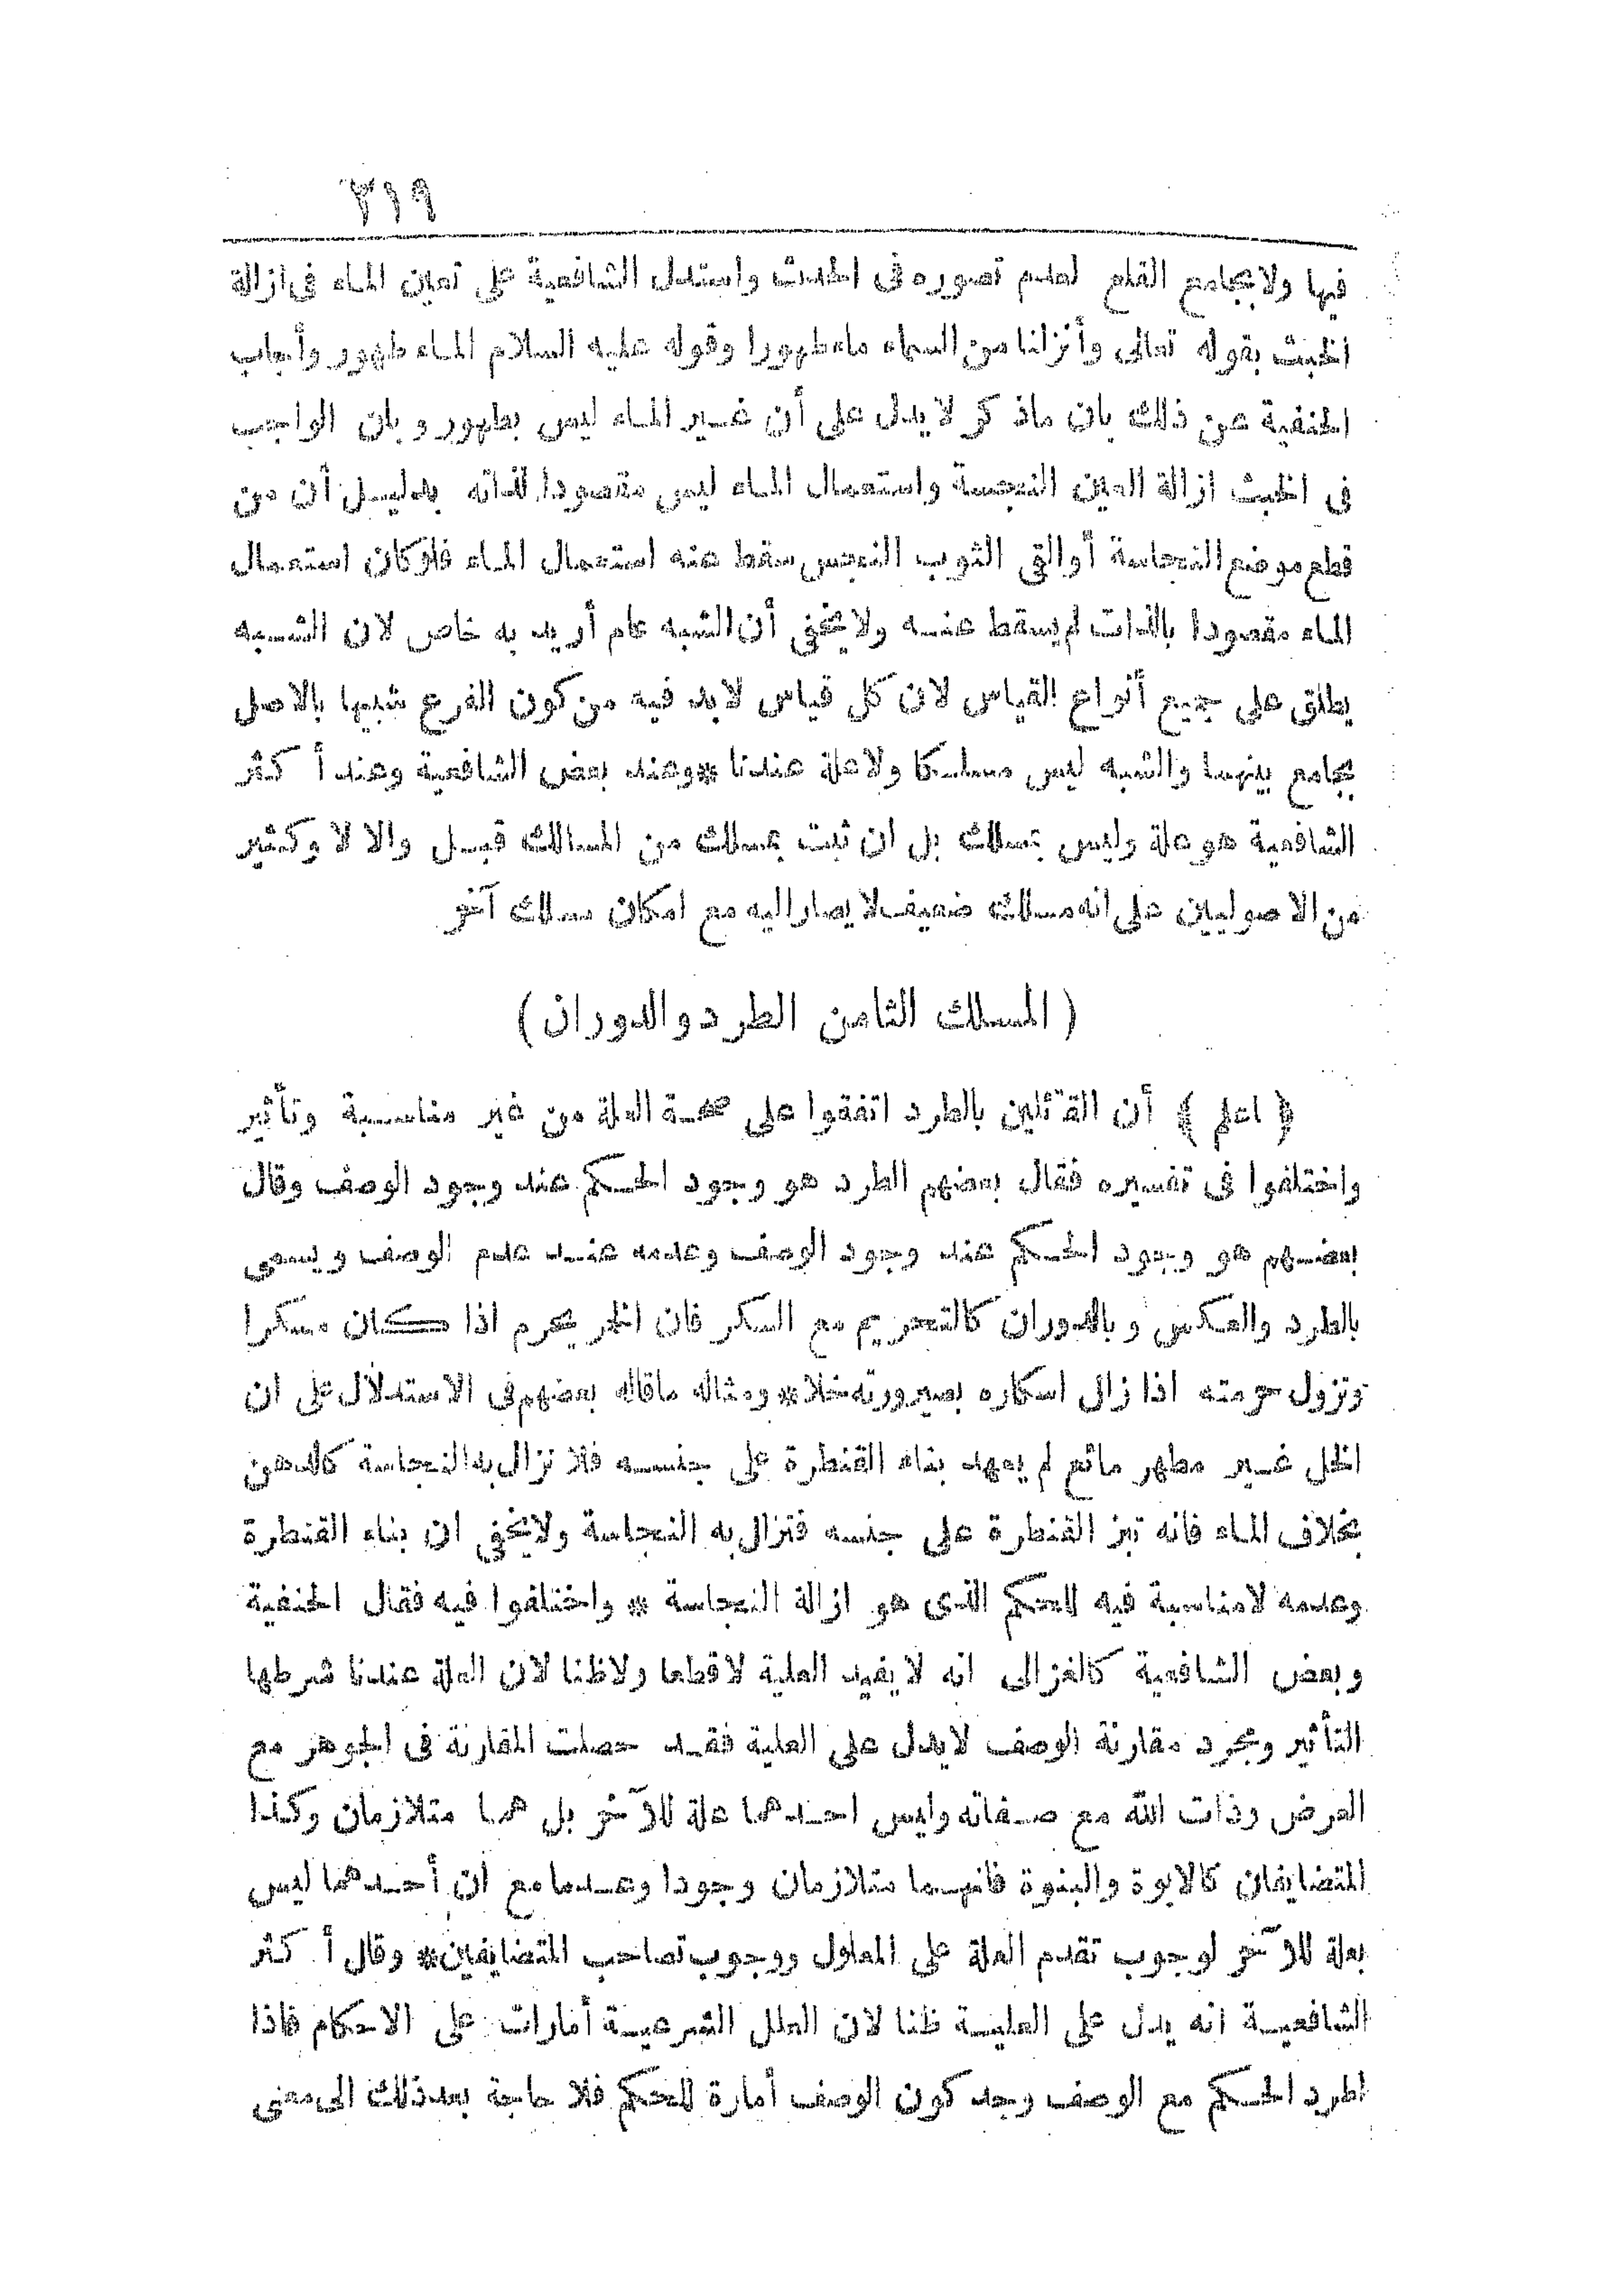 ٣١٩
فيها ولا يجامع القلع لعدم تصوره فى الحدث واستدل الشافعية على تعين الماء فى ازالة
الخبث بقوله تعالى وأنزلنا من السماء ماء طهورا وقوله عليه السلام الماء طهور وأجاب
الحنفية عن ذلك بان ماذكر لا يدل على أن غير الماء ليس بطهور و بان الواجب
فى الخبث ازالة العين النجسة واستعمال الماء ليس مقصودا لذاته بدليل أن من
قطع موضع النجاسة أو القى الثوب النجس سقط عنه استعمال الماء فلو كان استعمال
الماء مقصودا بالذات لم يسقط عنه ولا يخفى أن الشبه عام أريد به خاص لان الشبه
يطلق على جميع أنواع القياس لان كل قياس لابد فيه من كون الفرع شبيها بالاصل
بجامع بينهما والشبه ليس مسلكا ولا علة عندنا * وعند بعض الشافعية وعند أكثر
الشافعية هو علة وليس بمسلك بل ان ثبت بمسلك من المسالك قبل والا لا وكثير
من الاصوليين على انه مسلك ضعيف لا يصار اليه مع امكان مسلك آخر
( المسلك الثامن الطرد والدوران )
﴿ اعلم ﴾ أن القائلين بالطرد اتفقوا على صحة العلة من غير مناسبة وتأثير
واختلفوا فى تفسيره فقال بعضهم الطرد هو وجود الحكم عند وجود الوصف وقال
بعضهم هو وجود الحكم عند وجود الوصف وعدمه عند عدم الوصف ويسمى
بالطرد والعكس و بالدوران كالتحريم مع السكر فان الخمر يحرم اذا كان مسكرا
وتزول حرمته اذا زال اسكاره بصيرورته خلا * ومثاله ماقاله بعضهم فى الاستدلال على ان
الخل غير مطهر مائع لم يعهد بناء القنطرة على جنسه فلا تزال به النجاسة كالدهن
بخلاف الماء فانه تبنى القنطرة على جنسه فتزال به النجاسة ولا يخفى ان بناء القنطرة
وعدمه لامناسبة فيه للحكم الذى هو ازالة النجاسة * واختلفوا فيه فقال الحنفية
و بعض الشافعية كالغزالى انه لا يفيد العلية لا قطعا ولا ظنا لان العلة عندنا شرطها
التأثير ومجرد مقارنة الوصف لا يدل على العلية فقد حصلت المقارنة فى الجوهر مع
العرض وذات الله مع صفاته وليس احدهما علة للآخر بل هما متلازمان وكذا
المتضايفان كالابوة والبنوة فانهما متلازمان وجودا وعدما مع ان أحدهما ليس
بعلة للآخر لوجوب تقدم العلة على المعلول ووجوب تصاحب المتضايفين * وقال أكثر
الشافعية انه يدل على العلية ظنا لان العلل الشرعية أمارات على الاحكام فاذا
اطرد الحكم مع الوصف وجد كون الوصف أمارة للحكم فلا حاجة بعد ذلك الى معنى